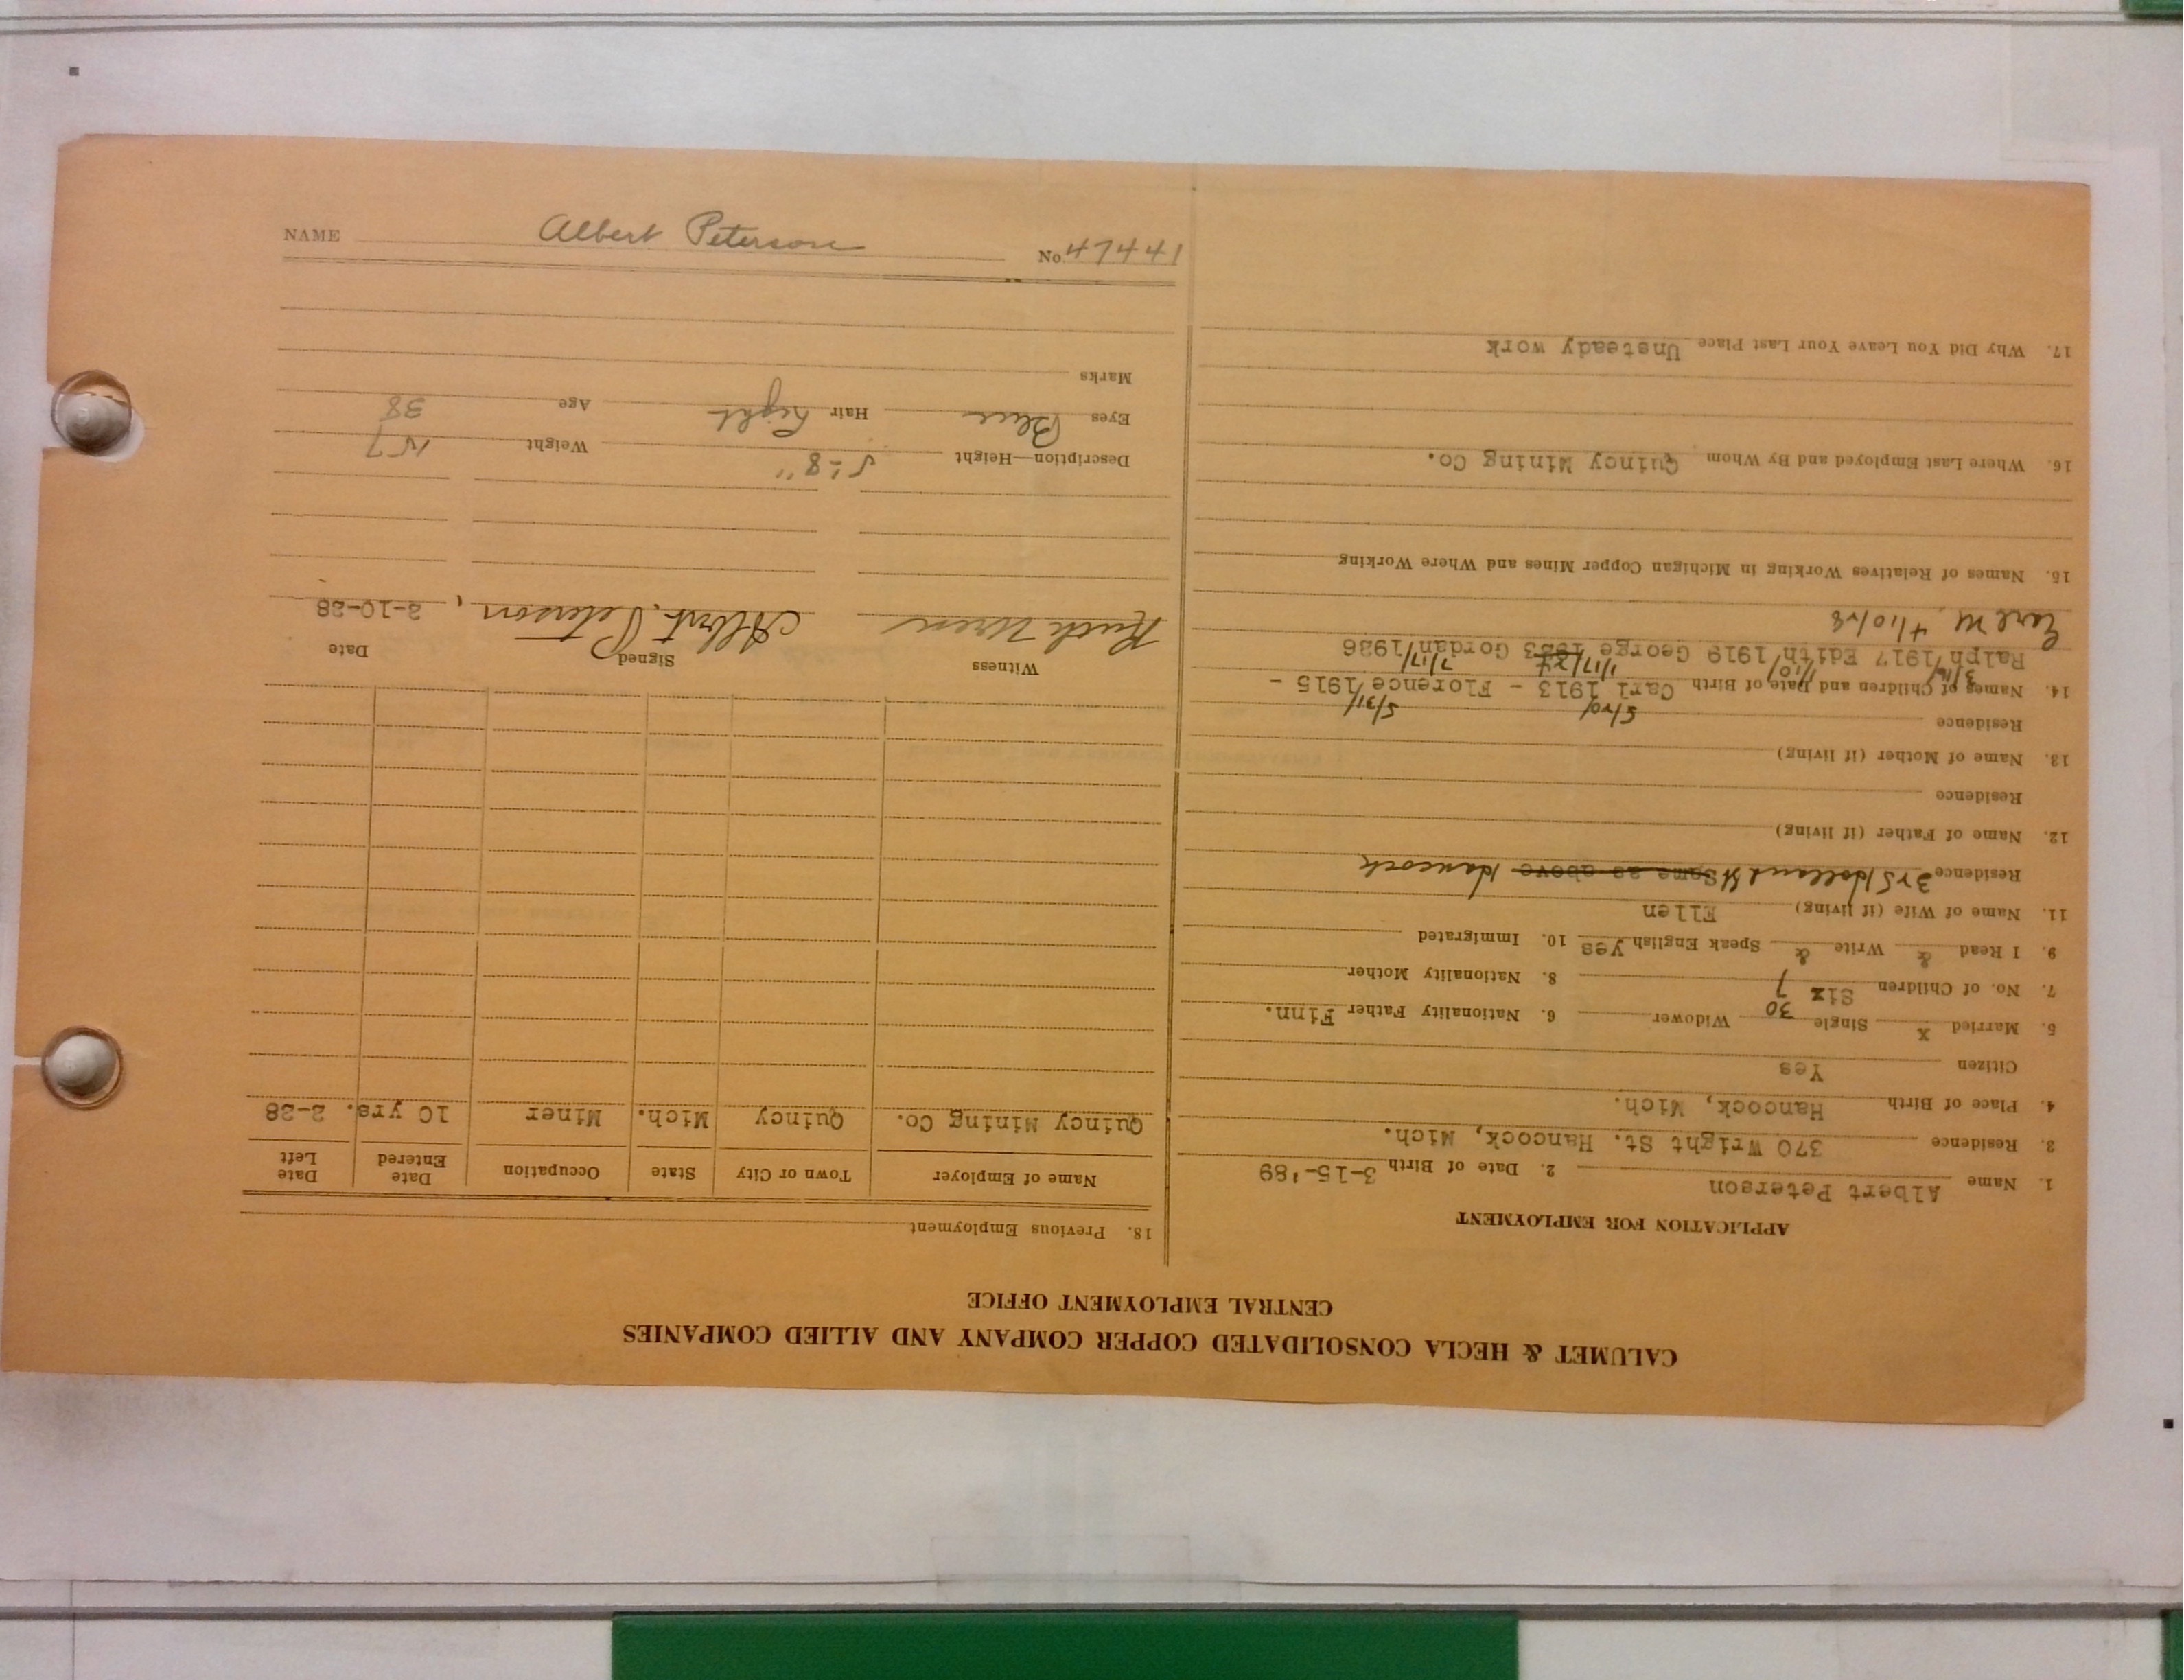 CALUMET & HECLA CONSOLIDATED COPPER COMPANY AND ALLIED COMPANIES
CENTRAL EMPLOYMENT OFFICE
APPLICATION FOR EMPLOYMENT
1. Name Albert Peterson 2. Date of Birth 3-15-'89
3. Residence 370 Wright St. Hancock, Mich.
4. Place of Birth Hancock, Mich.
Citizen Yes
5. Married x Single 30 Widower 6. Nationality Father Finn.
7. No. of Children Six 7 8. Nationality Mother
9. I Read & Write & Speak English Yes 10. Immigrated
11. Name of Wife (if living) Ellen
Residence 325 Holland St Same as above Hancock
12. Name of Father (if living)
Residence
13. Name of Mother (if living)
Residence
5/20/ 5/31/
14. Names of Children and Date of Birth Carl 1913 - Florence 1915 -
3/16/ 1/10/ 1/17/24 7/17/
Ralph 1917 Edith 1919 George 1923 Gordan 1926
Earl M. 4/10/28
15. Names of Relatives Working in Michigan Copper Mines and Where Working
16. Where Last Employed and By Whom Quincy Mining Co.
17. Why Did You Leave Your Last Place Unsteady work
18. Previous Employment
Name of Employer Town or City State Occupation Date Entered Date Left
Quincy Mining Co. Quincy Mich. Miner 10 yrs. 2-28
Witness Signed Date
Ruth Uren Albert Peterson, 2-10-28
Description—Height 5-8" Weight 157
Eyes Blue Hair Light Age 38
Marks
NAME Albert Peterson No. 47441